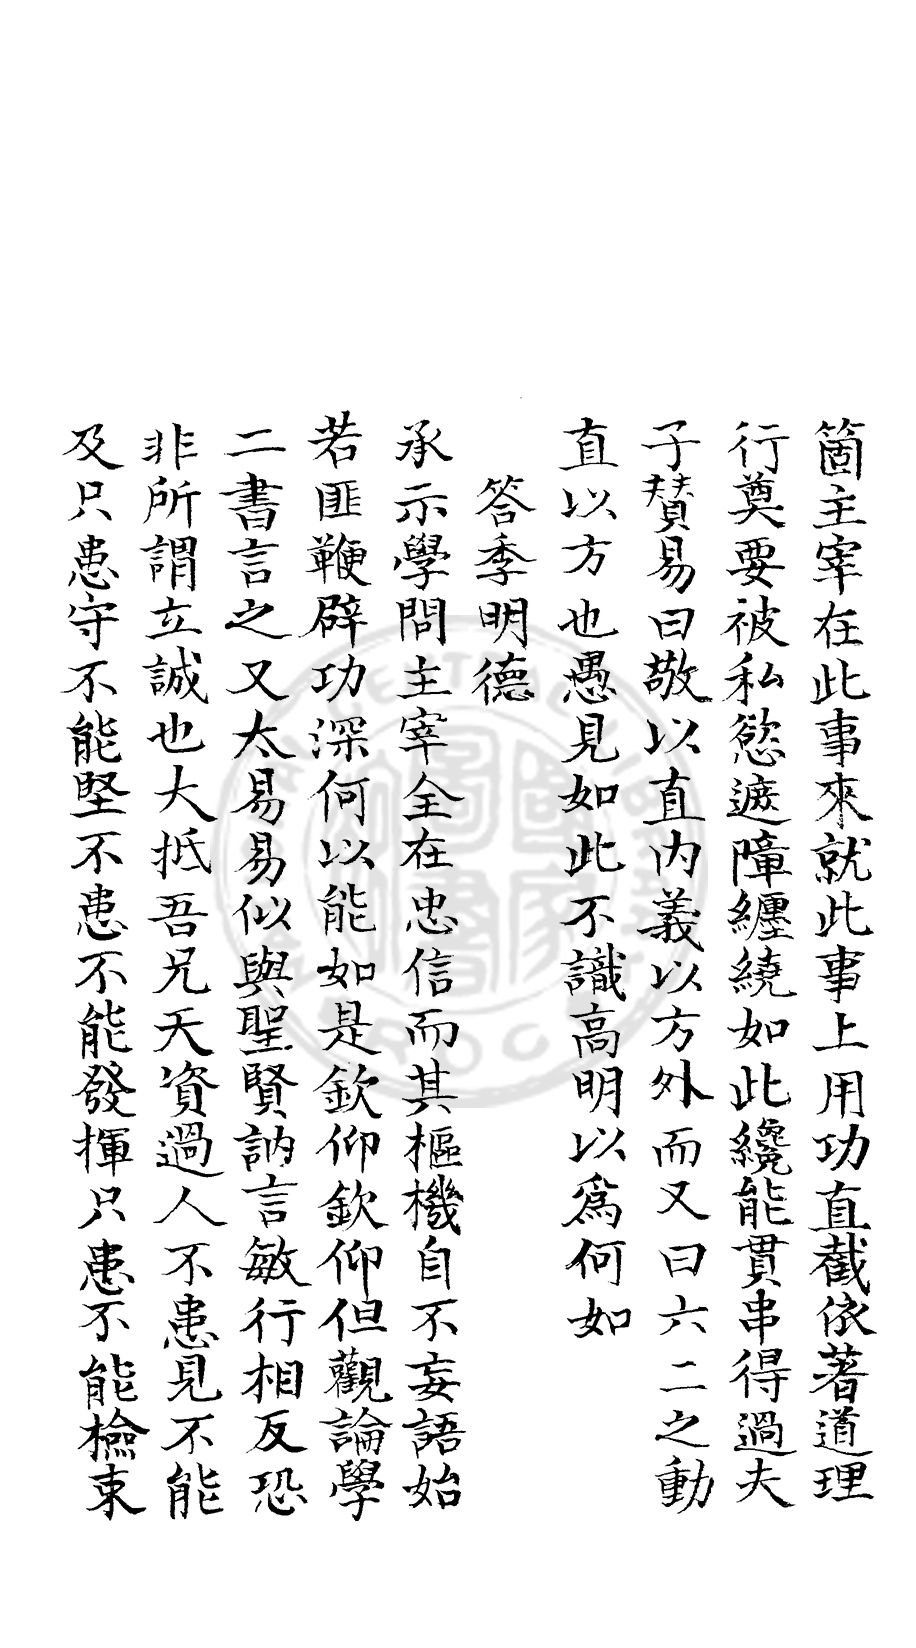 箇主宰在此事來就此事上用功直截依著道理
行奠要被私慾遮障纏繞如此纔能貫串得過夫
子賛易曰敬以直内義以方外而又曰六二之動
直以方也愚見如此不識高明以爲何如
答季明德
承示學問主宰全在忠信而其樞機自不妄語始
若匪鞭辟功深何以能如是欽仰欽仰但觀論學
二書言之又太易易似與聖賢訥言敏行相反恐
非所謂立誠也大抵吾兄天資過人不患見不能
及只患守不能堅不患不能發揮只患不能檢束